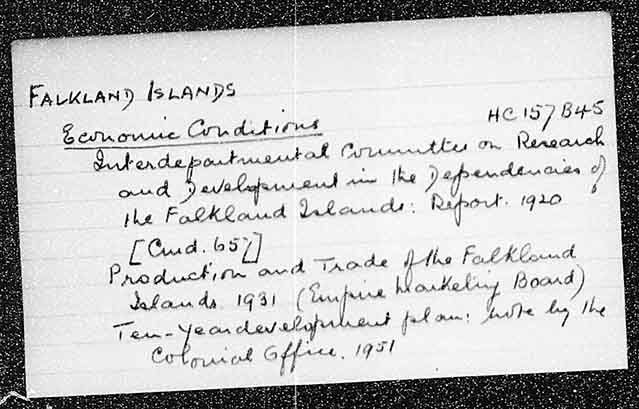 FALKLAND ISLANDS
HC 157 B45
Economic Conditions
Interdepartmental Committee on Research
and Development in the Dependencies of
the Falkland Islands: Report. 1920
[Cmd. 657]
Production and Trade of the Falkland
Islands 1931 (Empire Marketing Board)
Ten-Year development plan: note by the
Colonial Office. 1951